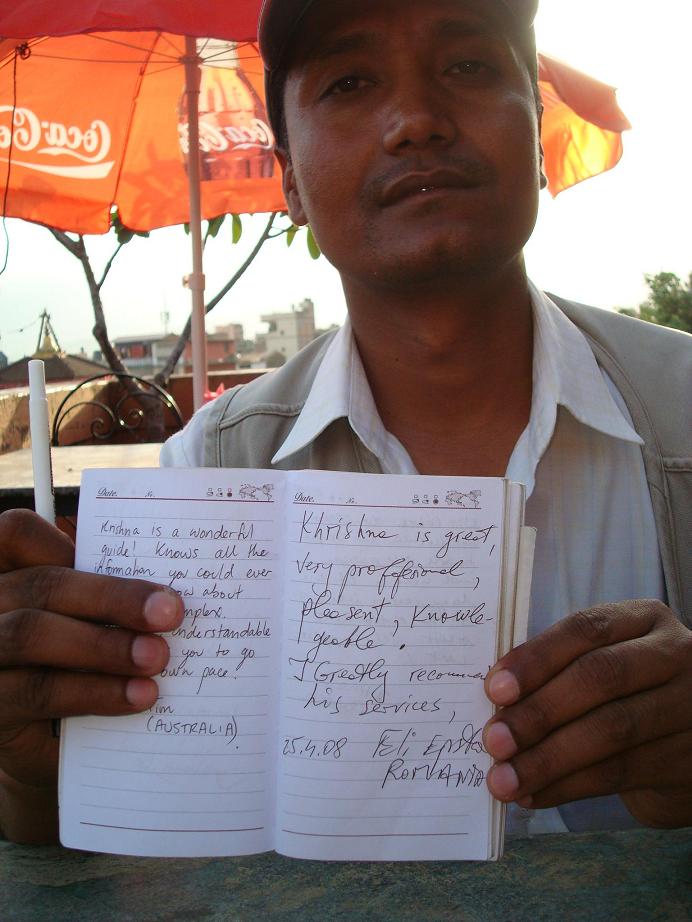 Coca-Cola
Coca-Cola
Date. No.
Krishna is a wonderful
guide! Knows all the
information you could ever
about
understandable
you to go
own pace.
(AUSTRALIA).
Date. No.
Khrishna is great,
Very proffesional,
pleasent, Knowle-
geable.
I Greatly
his services,
25.4.08 Eli
ROMANIA